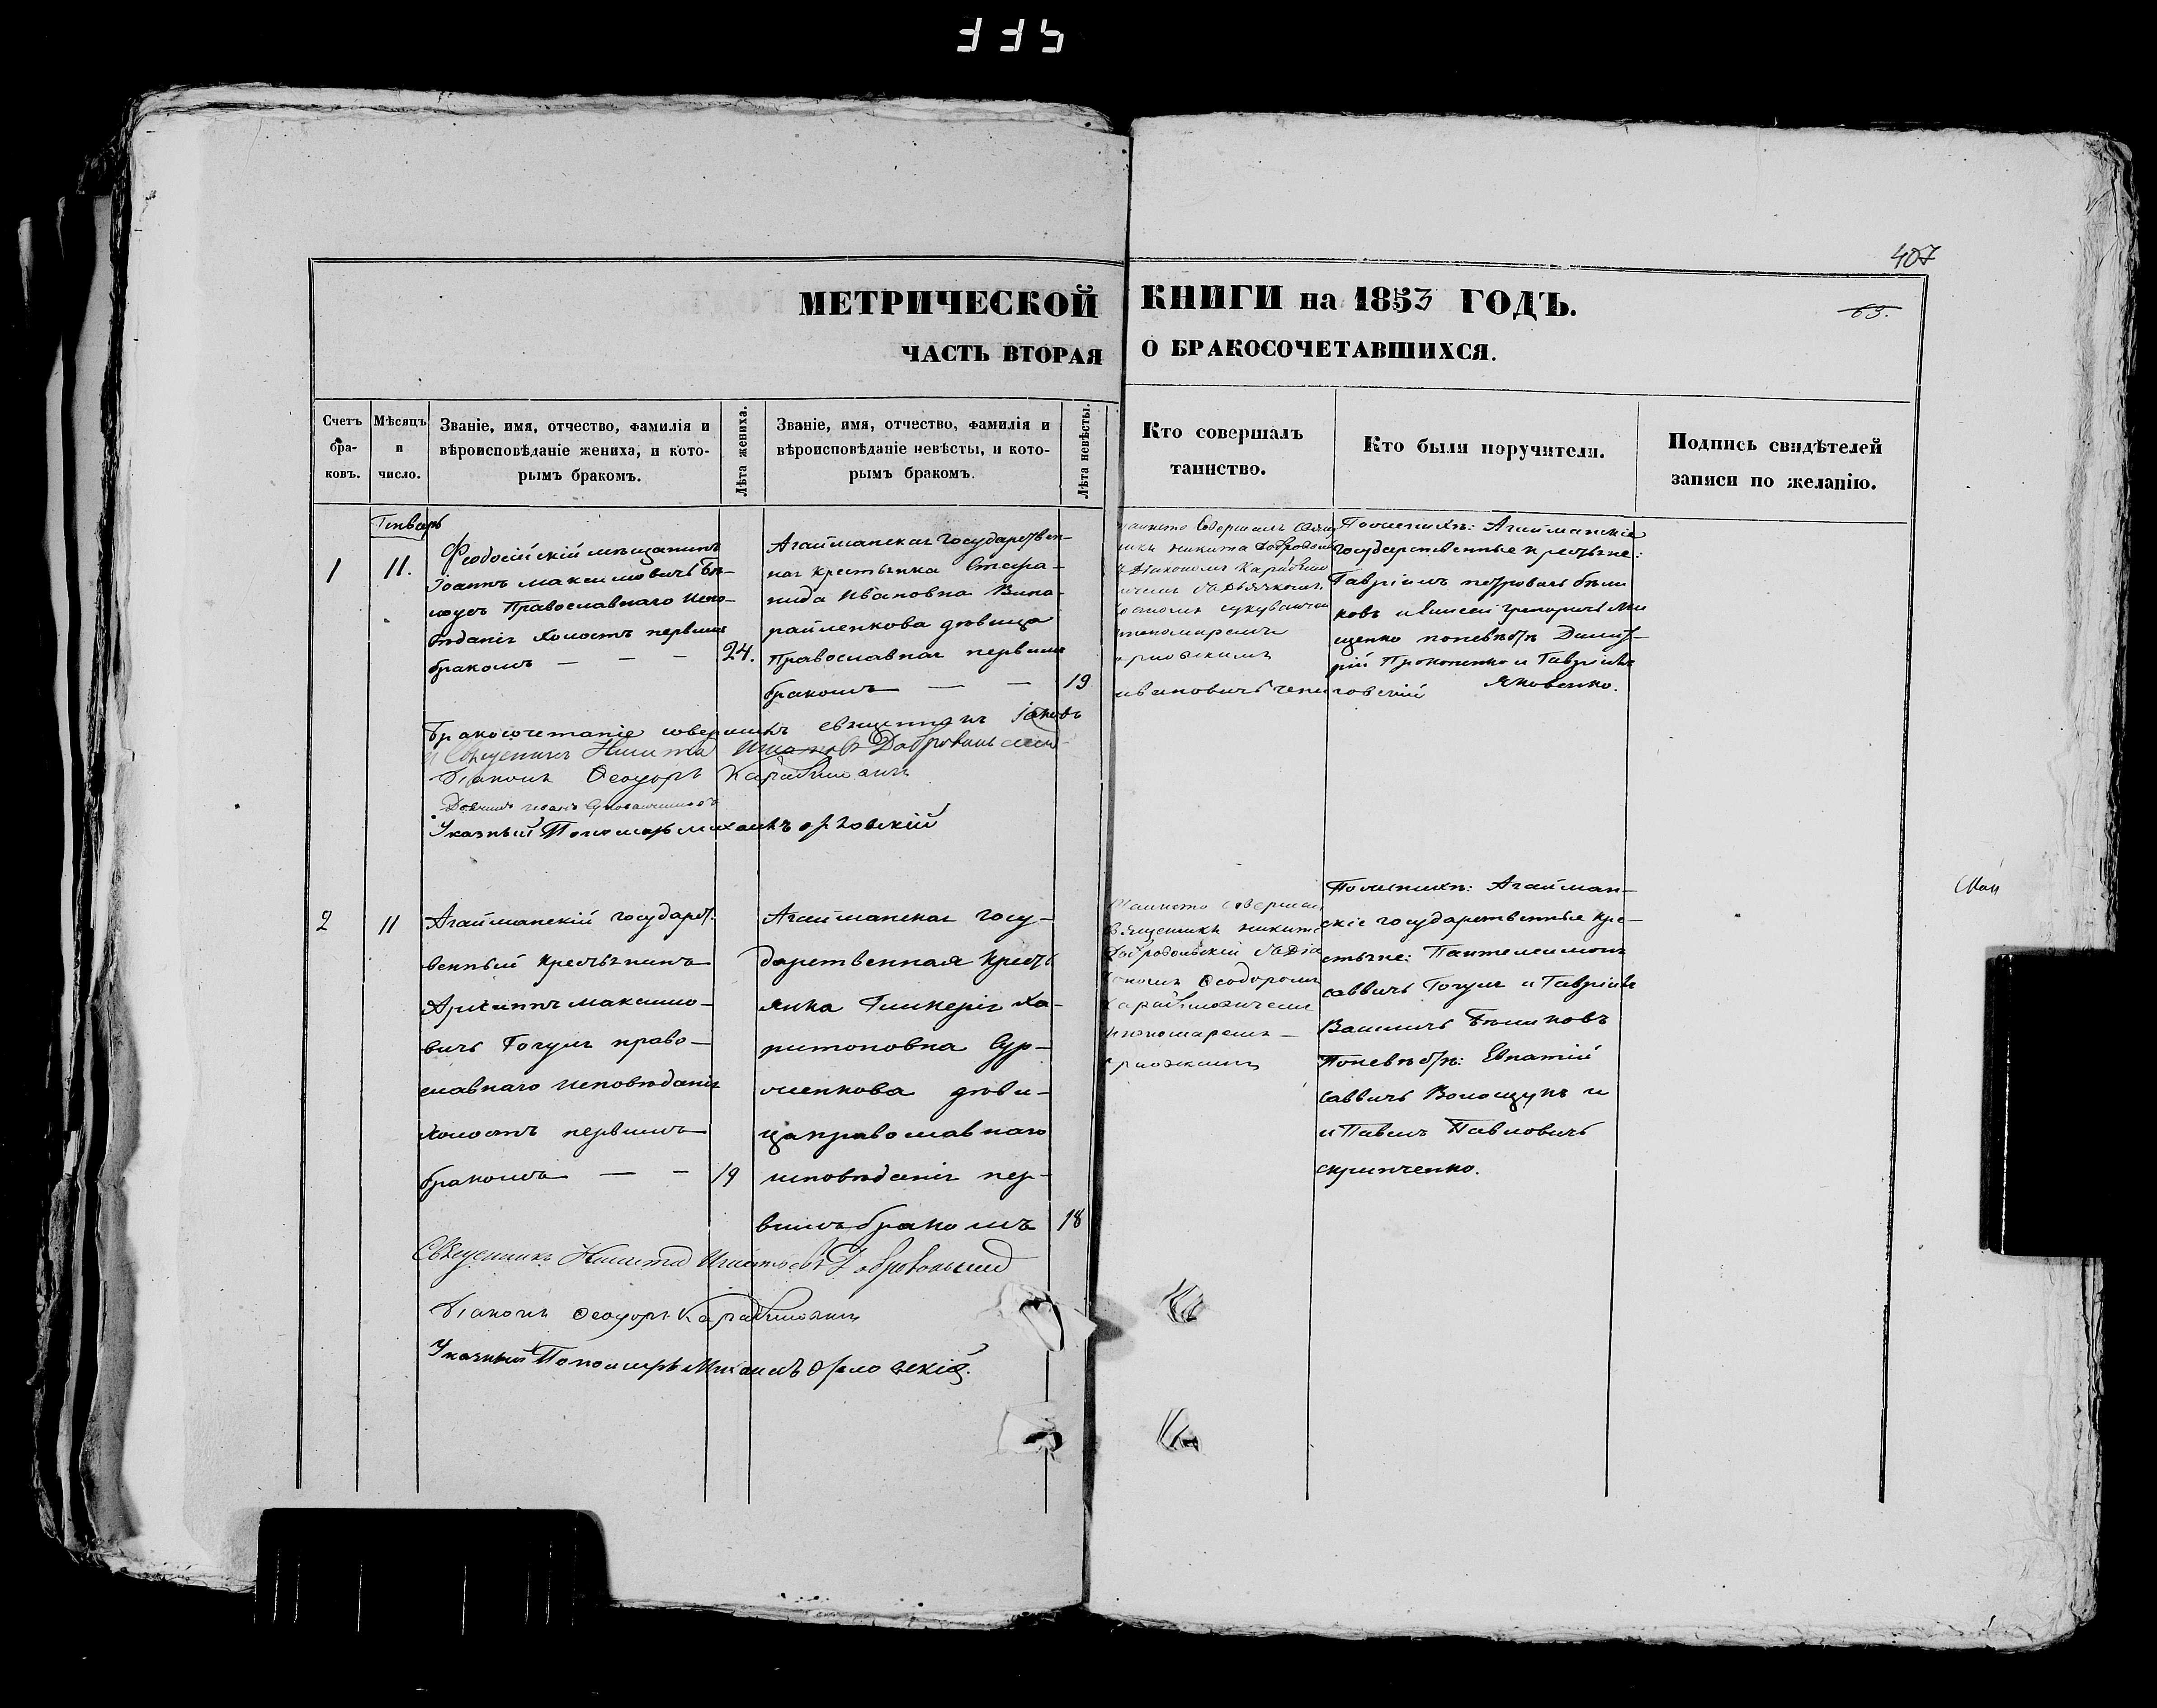 335
407
МЕТРИЧЕСКОЙ КНИГИ на 1853 ГОДЪ.
63.
ЧАСТЬ ВТОРАЯ О БРАКОСОЧЕТАВШИХСЯ.
Счетъ бра-ковъ.
Мѣсяцъ и число.
Званіе, имя, отчество, фамилія и
вѣроисповѣданіе жениха, и кото-
рымъ бракомъ.
Лѣта жениха.
Званіе, имя, отчество, фамилія и
вѣроисповѣданіе невѣсты, и кото-
рымъ бракомъ.
Лѣта невѣсты.
Кто совершалъ
таинство.
Кто были поручители.
Подпись свидѣтелей
записи по желанію.
Генварь
1
11.
Феодосійскій мѣщанинъ
Іоаннъ Максимовичъ Бѣ-
лоусъ Православнаго испо-
вѣданія холостъ первымъ
бракомъ — — —
24.
Агайманская государствен-
ная крестьянка Степа-
нида Ивановна
дѣвица
Православная первымъ
бракомъ — —
19
Никита
Дьякономъ
Поженихѣ: Агайманскіе
государственные крестьяне:
Гавріилъ Петровичъ Бѣли
ковъ и Елисей Григорьевъ Ми
щенко поневѣстѣ Димит-
рій Прокопенко и Гавріилъ
Яковенко.
Бракосочетаніе совершилъ священникъ Іаковъ
и Священникъ Никита Игнатьевъ Добровольскій
Діаконъ Ѳеодоръ
Указный Пономарь Михаилъ Орловскій
2
11
Агайманскій государст.
венный крестьянинъ
Архипъ Максимо-
вичъ Гогуля право-
славнаго исповѣданія
холостъ первымъ
бракомъ — —
19
Агайманская госу-
дарственная кресть
янка Гликерія Ха-
ритоновна Сур-
менкова дѣви-
ца православнаго
исповѣданія пер-
вымъ бракомъ
18
Таинство совершал
священникъ Никита
Добровольскій съ Діа
кономъ Ѳеодоромъ
Поженихѣ: Агайман-
скіе государственные кре-
стьяне: Пантелеимонъ
Саввичъ Гогуля и Гавріилъ
Бѣликовъ
Поневѣстѣ: Евпатій
Саввичъ Волощукъ и
и Павелъ Павловичъ
Скрипченко.
Священникъ Никита Игнатьевъ Добровольскій
Діаконъ Ѳеодоръ
Указный Пономарь Михаилъ Орловскій.